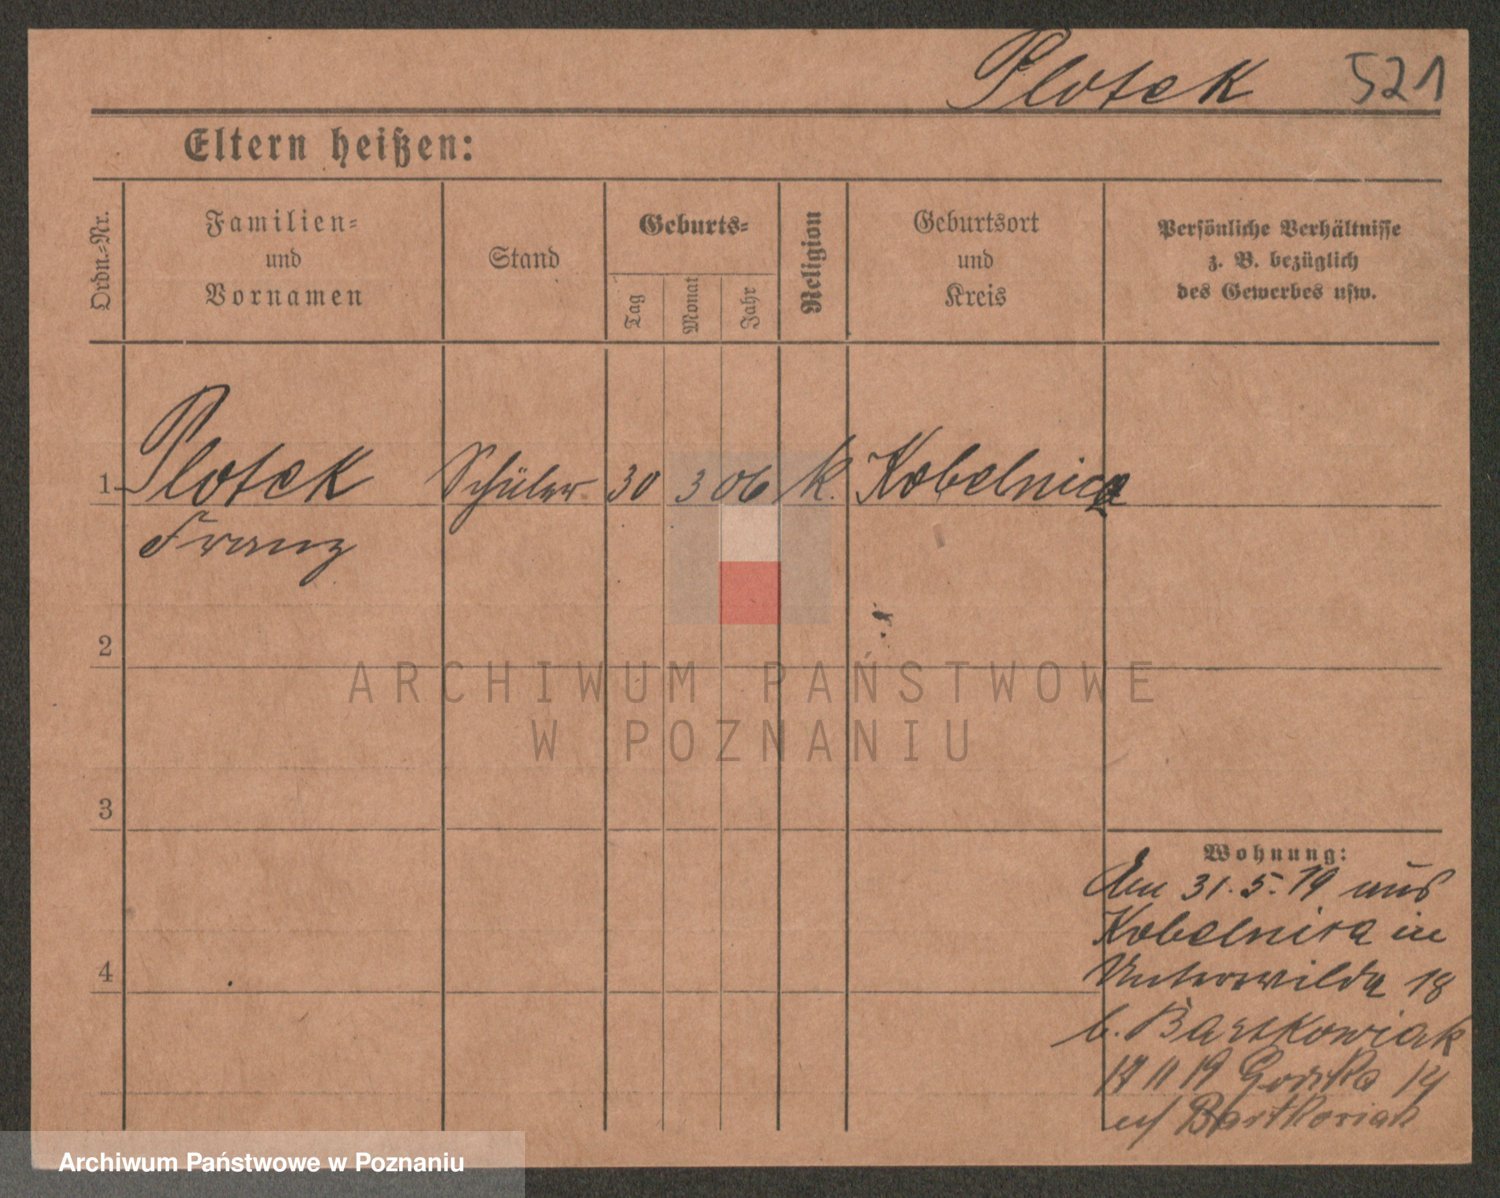 Plotek 521
Eltern heißen:
Ordn.-Nr.
Familien-
und
Vornamen
Stand
Geburts-
Tag
Monat
Jahr
Religion
Geburtsort
und
Kreis
Persönliche Verhältnisse
z. B. bezüglich
des Gewerbes usw.
1 Plotek Schüler 30 3 06 k. Kobelnica
Franz
2
ARCHIWUM PAŃSTWOWE
W POZNANIU
3
Wohnung:
Am 31.5.19 aus
Kobelnica in
Unterwilda 18
b. Bartkowiak
17 11 19 14
Bartkowiak
4
Archiwum Państwowe w Poznaniu